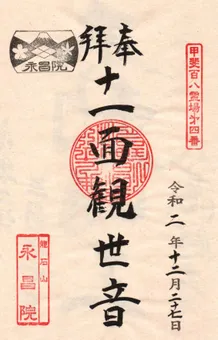 甲斐百八霊場第四番
奉拝
十一面観世音
令和二年十二月二十七日
永昌院
龍石山
永昌院